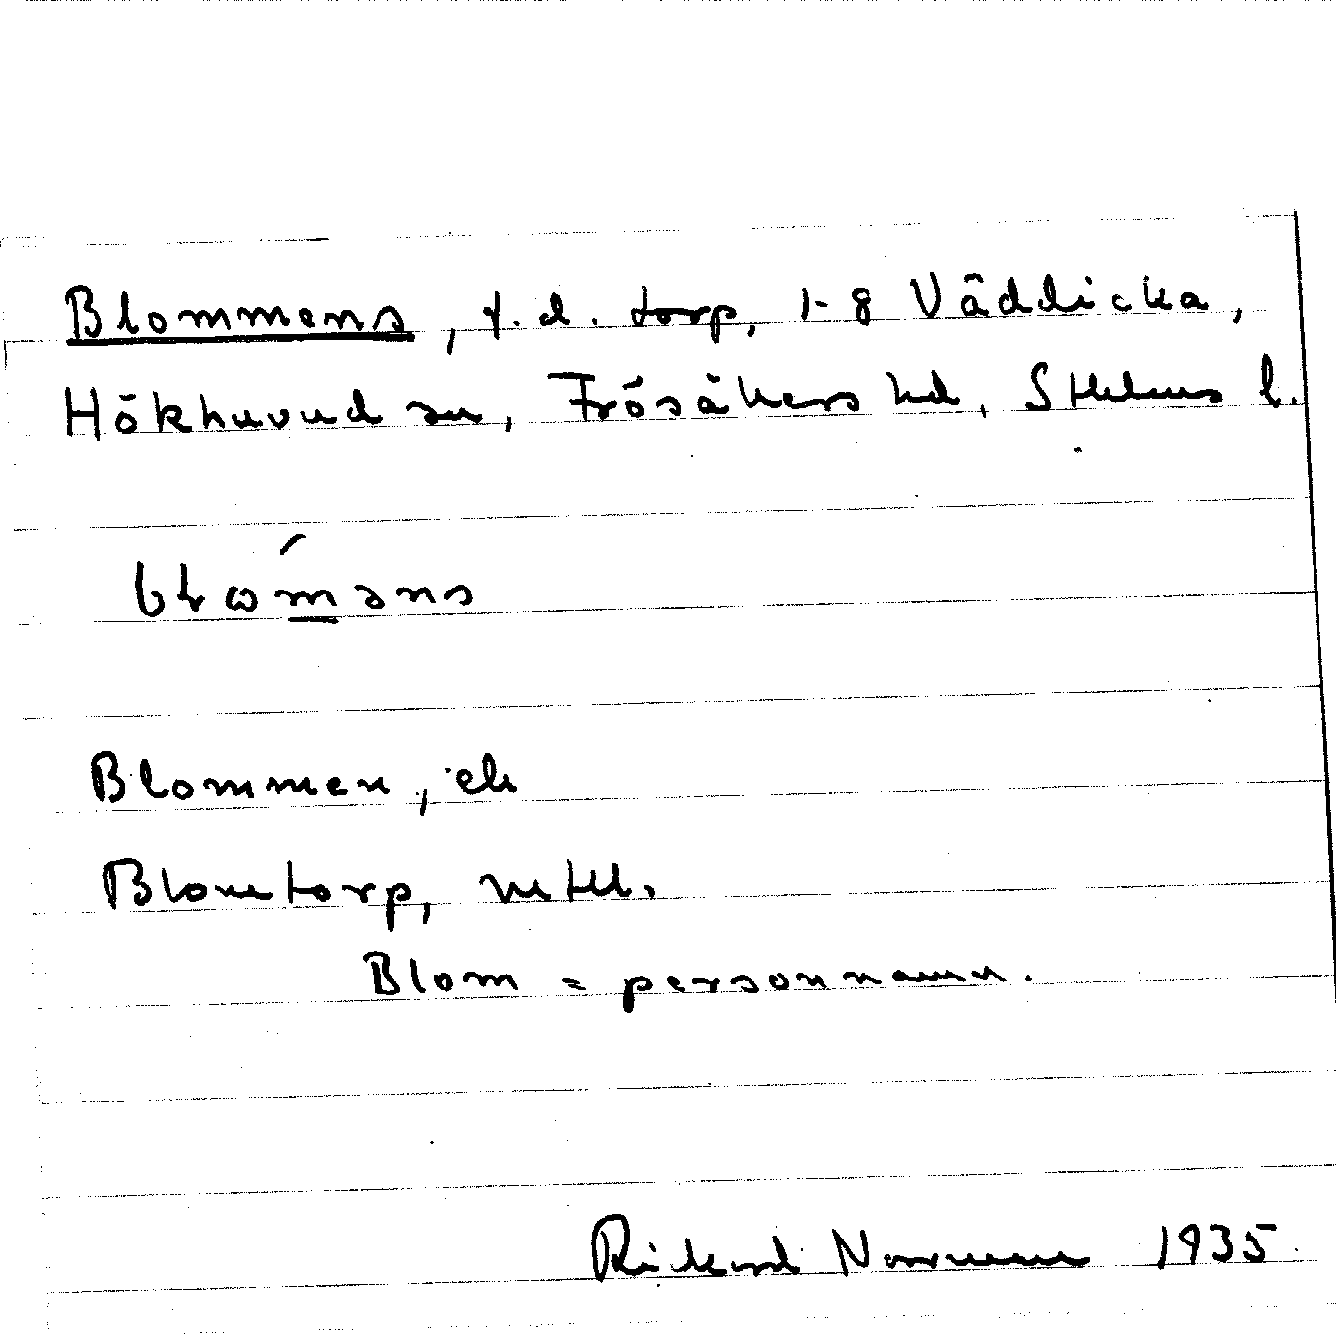 Blommens, f.d. torp, 1-8 Väddicka,
Hökhuvud sn, Frösåkers hd, Sthlms l.
bloməns
Blommen, ek
Blomtorp, mtl.
Blom = personnamn.
Rickard Norrman 1935.